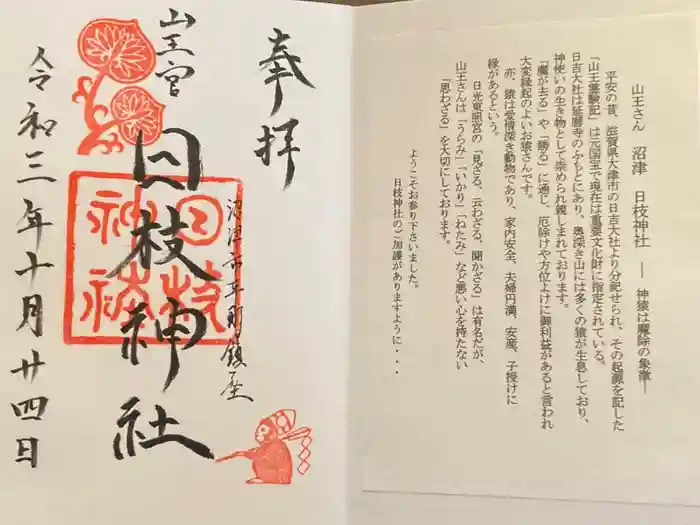 山王さん　沼津　日枝神社　―　神猿は魔除の象徴―
平安の昔、滋賀県大津市の日吉大社より分祀せられ、その起源を記した
「山王霊験記」は元国宝で現在は重要文化財に指定されている。
日吉大社は延暦寺のふもとにあり、奥深き山には多くの猿が生息しており、
神使いの生き物として崇められ親しまれております。
「魔が去る」や「勝る」に通じ、厄除けや方位よけに御利益があると言われ
大変縁起のよいお猿さんです。
亦、猿は愛情深き動物であり、家内安全、夫婦円満、安産、子授けに
縁があるという。
日光東照宮の「見ざる、云わざる、聞かざる」は有名だが、
山王さんは「うらみ」「いかり」「ねたみ」など悪い心を持たない
「思わざる」を大切にしております。
ようこそお参り下さいました。
日枝神社のご加護がありますように・・・
奉拝
沼津市平町鎮座
山王宮
日枝神社
日枝
神社
令和三年十月廿四日